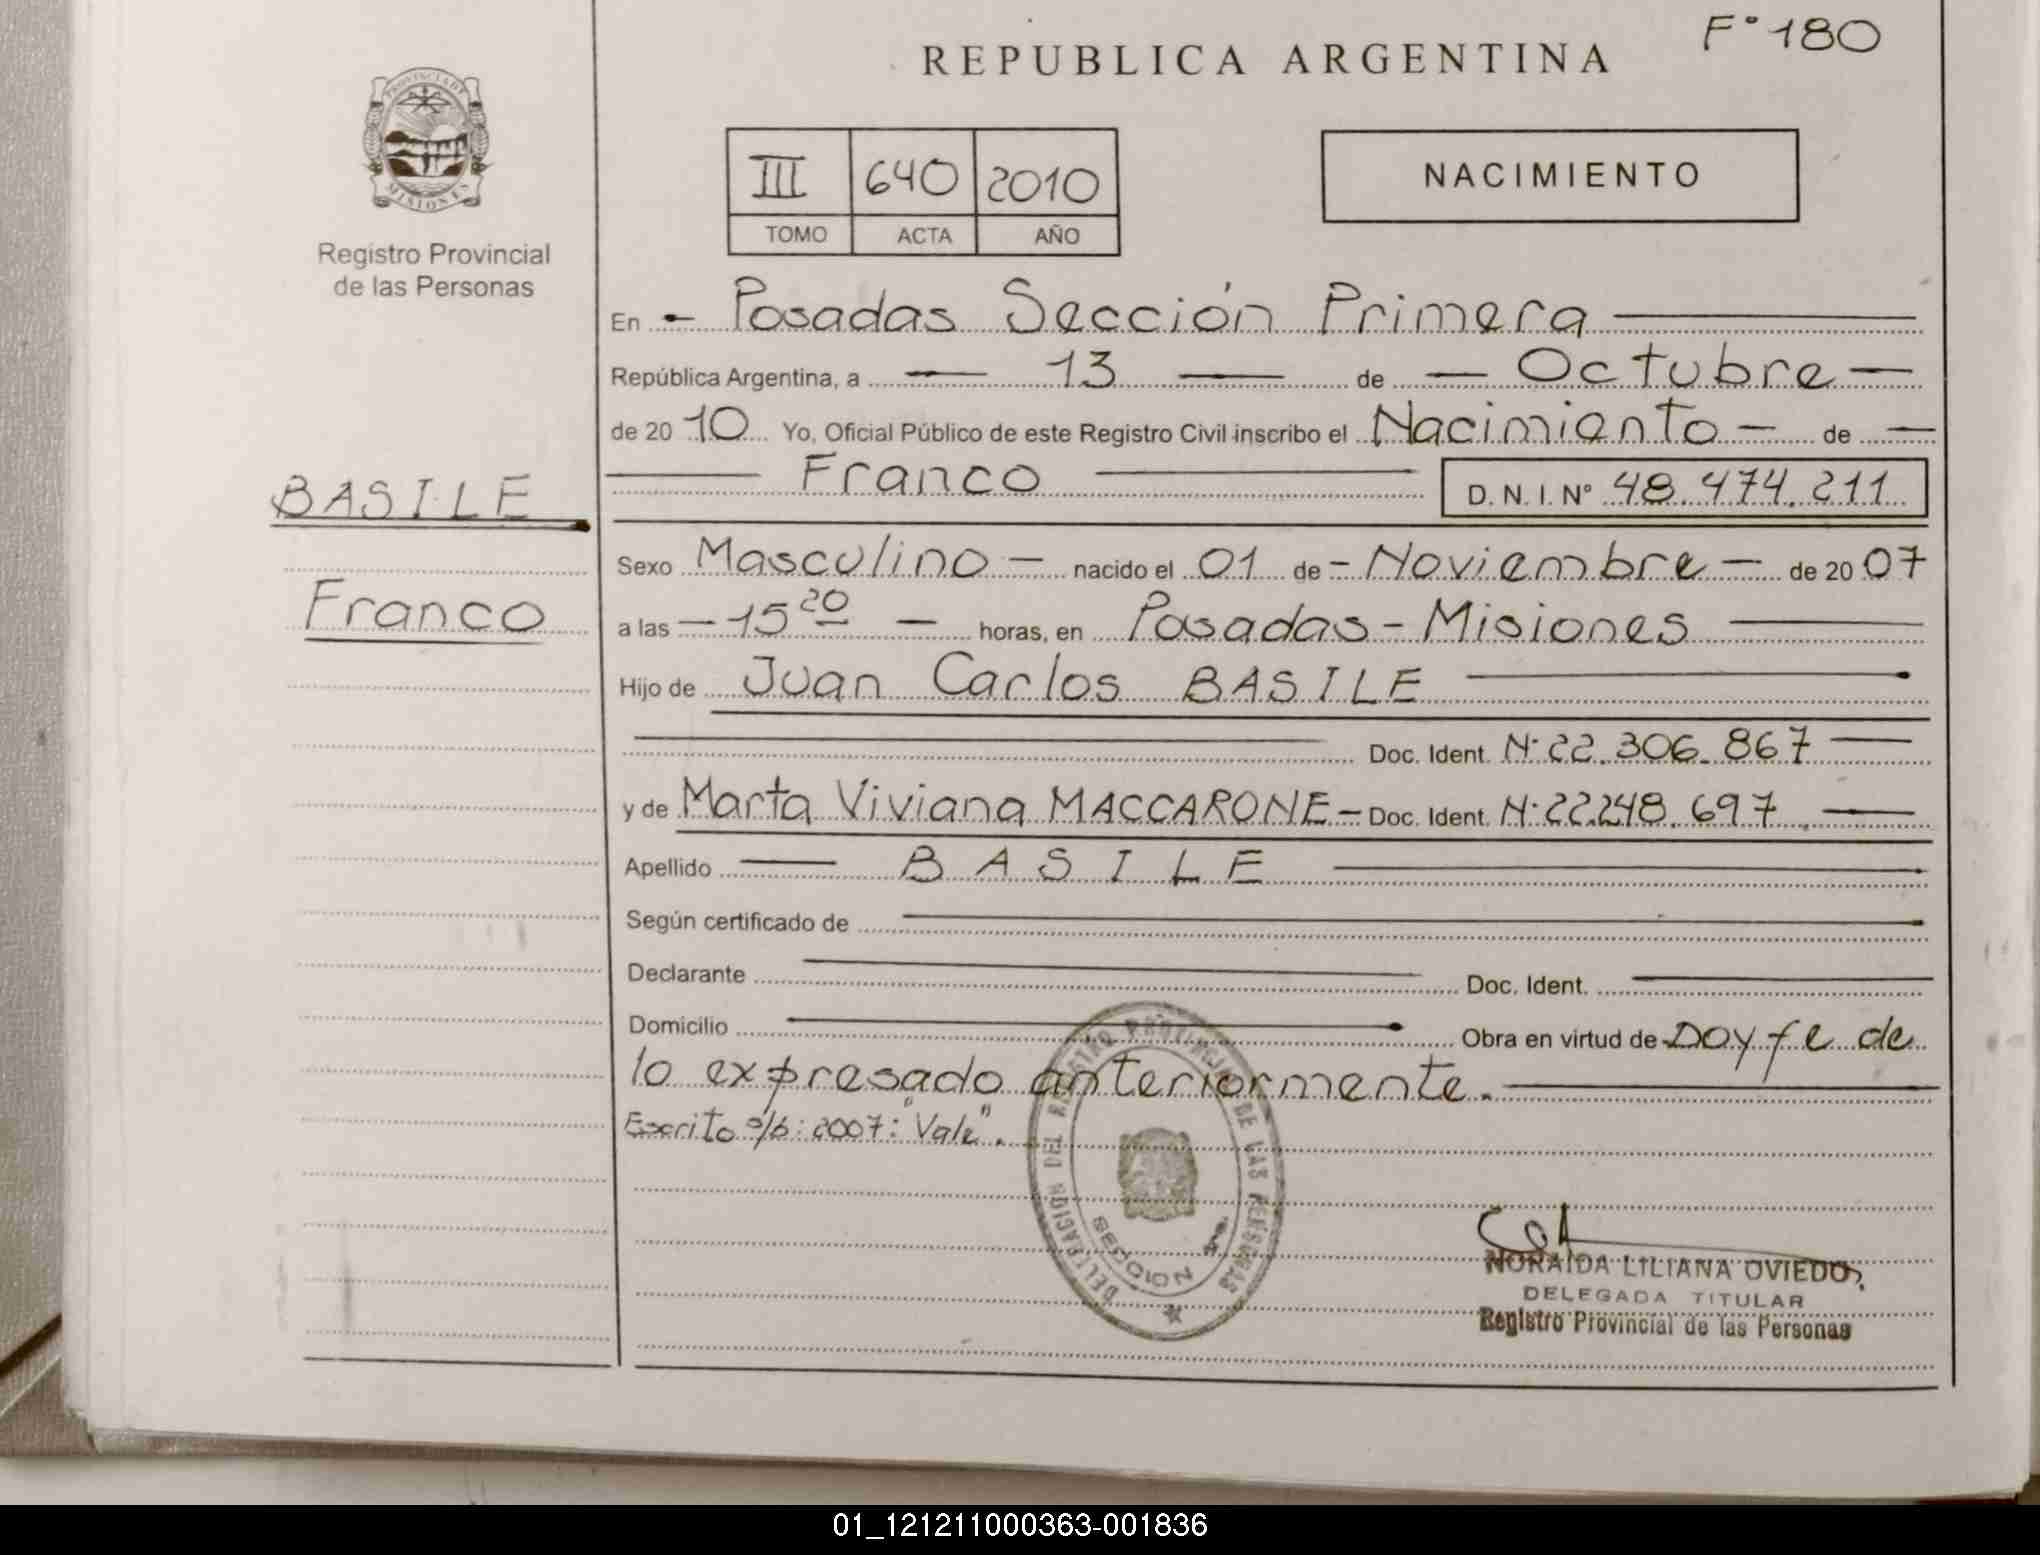 F° 180
REPUBLICA ARGENTINA
PROVINCIA DE
MISIONES
Registro Provincial
de las Personas
III 640 2010
TOMO ACTA AÑO
NACIMIENTO
En Posadas Sección Primera
República Argentina, a 13 de Octubre
de 20 10 Yo, Oficial Público de este Registro Civil inscribo el Nacimiento de
Franco D. N. I. N° 48.474.211
BASILE
Franco
Sexo Masculino nacido el 01 de Noviembre de 20 07
a las 15 20 horas, en Posadas - Misiones
Hijo de Juan Carlos BASILE
Doc. Ident. N° 22.306.867
y de Marta Viviana MACCARONE Doc. Ident. N° 22.248.697
Apellido BASILE
Según certificado de
Declarante Doc. Ident.
Domicilio Obra en virtud de Doy fe de
lo expresado anteriormente.
Escrito s/b: 2007: "Vale".
DELEGACION DEL REGISTRO PROVINCIAL DE LAS PERSONAS
SECCION 1ra.
NORAIDA LILIANA OVIEDO
DELEGADA TITULAR
Registro Provincial de las Personas
01_121211000363-001836